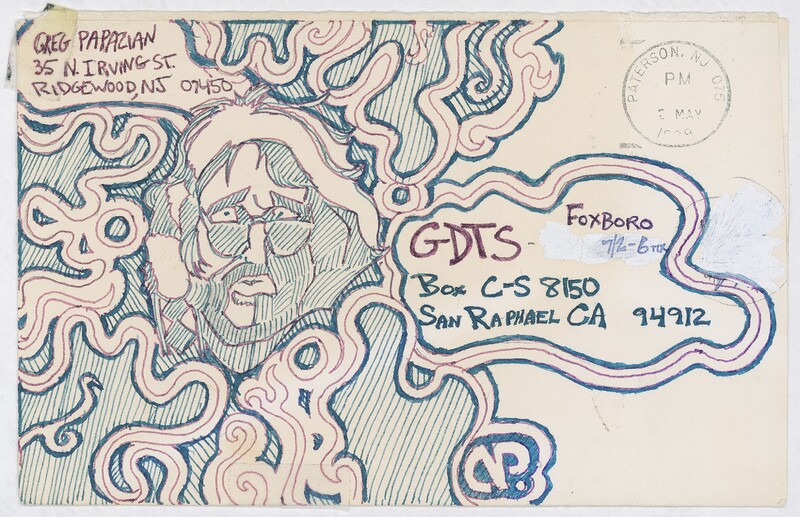 GREG PAPAZIAN
35 N. IRVING ST.
RIDGEWOOD, NJ 07450
PATERSON, NJ 075
PM
2 MAY
GDTS -
FOXBORO
7/2-6TIX
Box C-S 8150
SAN RAPHAEL CA 94912